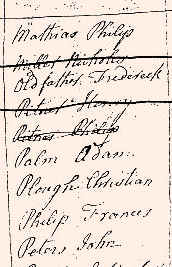 Mathias Philip
Miller Nicholas
Oldfather Frederick
Pitner Henry
Pitner Philip
Palm Adam
Plough Christian
Philip Frances
Peters John